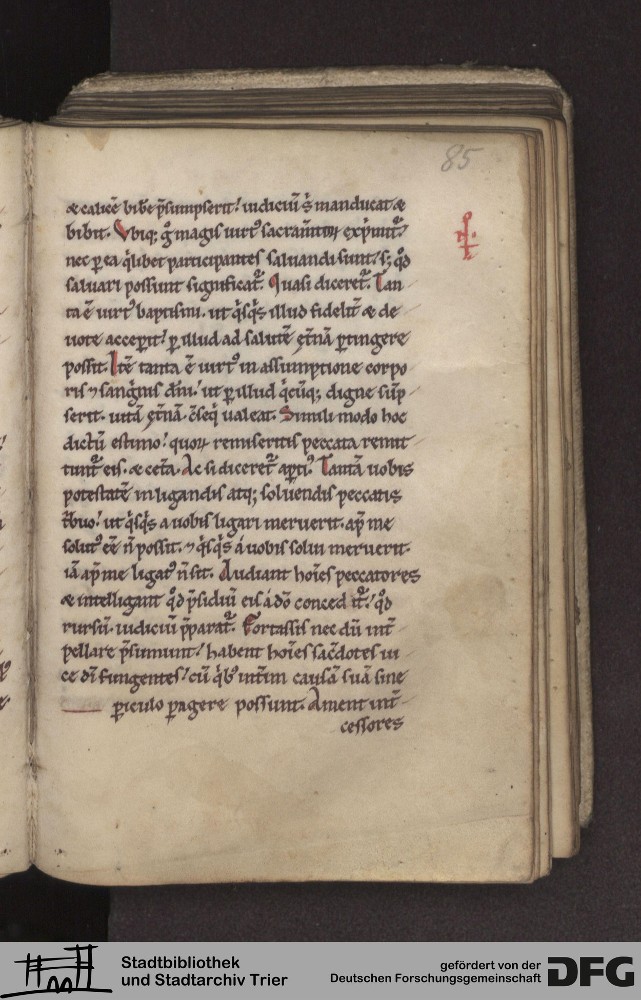 85
& calicē bibe p̄sumpserit! iudiciū s̄ manducat &
bibit. Vbiq; g̊ magis uirt᷒ sacram̄toꝝ exp̄mit᷑!
nec ꝑ ea q̇libet participantes saluandi sunt! s; qđ
saluari possunt significat᷑. Quasi diceret᷑. Tan
ta ē uirt᷒ baptismi. ut q̇sq̇s illud fidelit̄ & de
uote acceꝑit! ꝑ illud ad salutē ęt̄nā ꝑtingere
possit. Itē tanta ē uirt᷒ in assumptione corpo
ris ⁊ sanguinis dn̄i. ut ꝑ illud q̇cūq; digne sūp
serit. uitā ęt̄nā c̄seq̇ ualeat. Simili modo hoc
dictū estimo! quoꝝ remiseritis peccata remit
tunt᷑ eis. & cet̄a. Ac si diceret᷑ aꝑti᷒. Tantā uobis
potestatē in ligandis atq; soluendis peccatis
t̄buo! ut q̇sq̇s a uobis ligari meruerit. ap̄ me
solut᷒ eē n̄ possit. ⁊ q̇sq̇s á uobis solui meruerit.
iā ap̄ me ligat᷒ n̄ sit. Audiant hoīes peccatores
& intelligant qđ p̄sidiū eis á dō concedit᷑! qđ
rursū. iudiciū p̄parat᷑. Fortassis nec dū int̄
pellare p̄sumunt! habent hoīes sac̄dotes ui
ce dī fungentes! cū q̇b᷒ int̄im causā suā sine
ꝑiculo ꝑagere possunt. Ament int̄
cessores
Stadtbibliothek
und Stadtarchiv Trier
gefördert von der
Deutschen Forschungsgemeinschaft
DFG